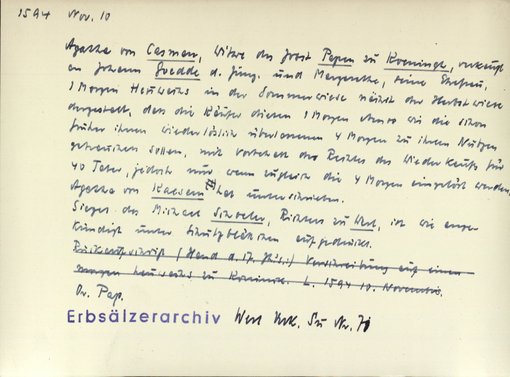 1594 Nov. 10
Agatha von Casmen, Witwe des Jost Papen zu Koeningk, verkauft
an Johann Goedde d. Jüng. und Margarethe, seine Ehefrau,
1 Morgen Heuwachs in der Sommerwiese nächst der Herbstwiese
dergestalt, dass die Käufer diesen 1 Morgen ebenso wie die schon
früher ihnen wiederlöslich überlassenen 4 Morgen zu ihrem Nutzen
gebrauchen sollen, mit Vorbehalt des Rechtes des Wiederkaufs für
40 Taler, jedoch nur wenn zugleich die 4 Morgen eingelöst werden.
Agatha von Kaesem hat unterschrieben.
Siegel des Michael Schoeler, Richters zu Werl, ist wie ange-
kündigt unter Schutzblättchen aufgedrückt.
Rückaufschrift (Hand d. 17. Jhs.:) Verschreibung auf einen
morgen heuwachs zu Koninck. L. 1594 10. Novembris.
Or. Pap.
Erbsälzerarchiv Werl Urk. Su Nr. 70